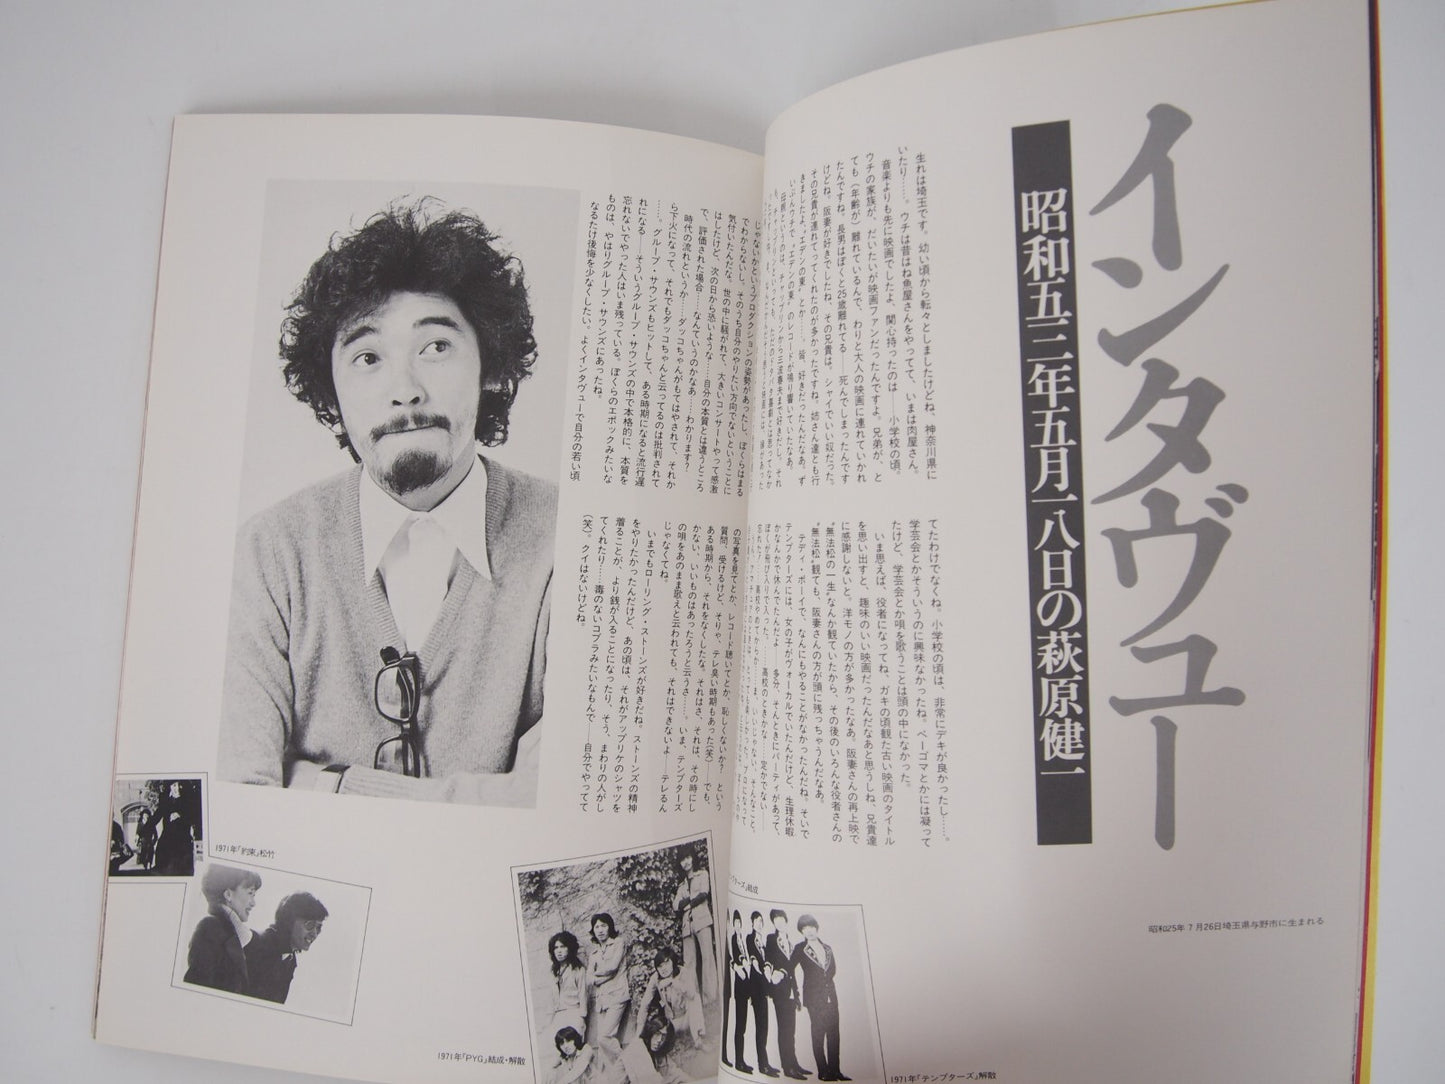 インタヴュー
昭和五三年五月一八日の萩原健一
生れは埼玉です。幼い頃から転々としましたけどね、神奈川県に
いたり……。ウチは昔はね魚屋さんをやってて、いまは肉屋さん。
音楽よりも先に映画でしたよ、関心持ったのは――小学校の頃。
ウチの家族が、だいたいが映画ファンだったんですよ。兄弟が、と
ても(年齢が)離れているんで、わりと大人の映画に連れていかれ
たんですね。長男はぼくと25歳離れてる　死んでしまったんです
けどね。阪妻が好きでしたね、その兄貴は。シャイでいい奴だった。
その兄貴が連れてってくれたのが多かったですね。姉さん達とも行
きましたよ、〝エデンの東〟とか……。皆、好きだったんだなあ。ず
いぶんウチで〝エデンの東〟のレコードが鳴り響いていたなあ。
てたわけでなくね。小学校の頃は、非常にデキが良かったし……。
学芸会とかそういうのに興味なかったね。ベーゴマとかには凝って
たけど、学芸会とか唄を歌うことは頭の中になかった。
いま思えば、役者になってね、ガキの頃観た古い映画のタイトル
を思い出すと、趣味のいい映画だったんだなあと思うしね、兄貴達
に感謝しないと。洋モノの方が多かったなあ。阪妻さんの再上映で
〝無法松の一生〟なんか観ていたから、その後のいろんな役者さんの
〝無法松〟観ても、阪妻さんの方が頭に残っちゃうんだなあ。
テディ・ボーイで、なんにもやることがなかったんだね。そいで
テンプターズには、女の子がヴォーカルでいたんだけど、生理休暇
かなんかで休んでたんだよ　多分、そんときにパーティがあって、
ぼくが飛び入りで入った。　高校のときかな……定かでない――
昭和25年7月26日埼玉県与野市に生まれる
ンプターズ」結成
1971年「テンプターズ」解散
じゃないかというプロダクションの姿勢があったし、ぼくらはまる
でわからないし、そのうち自分のやりたい方向でないということに
気付いたんだな。世の中に騒がれて、大きいコンサートやって感激
はしたけど、次の日から恐いような……自分の本質とは違うところ
で、評価された場合……なんていうのかなあ……わかります?
時代の流れというか……ダッコちゃんがもてはやされて、それか
ら下火になって、それでもダッコちゃんと云ってるのは批判されて
……。グループ・サウンズもヒットして、ある時期になると流行遅
れになる――そういうグループ・サウンズの中で本格的に、本質を
忘れないでやった人はいま残っている。ぼくらのエポックみたいな
ものは、やはりグループ・サウンズにあったね。
なるたけ後悔を少なくしたい。よくインタヴューで自分の若い頃
の写真を見てとか、レコード聴いてとか、恥しくないか?　という
質問、受けるけど、そりゃ、テレ臭い時期もあった(笑)――でも、
ある時期から、それをなくしたな。それはさ、それは、その時にし
かない、いいものはあったろうと云うさ……。いま、テンプターズ
の唄をあのまま歌えと云われても、それはできないよ――テレるん
じゃなくてね。
いまでもローリング・ストーンズが好きだね。ストーンズの精神
をやりたかったんだけど、あの頃は、それがアップリケのシャツを
着ることが、より銭が入ることになったり、そう、まわりの人がし
てくれたり……毒のないコブラみたいなもんで――自分でやってて
(笑)。クイはないけどね。
1971年「約束」松竹
1971年「PYG」結成・解散